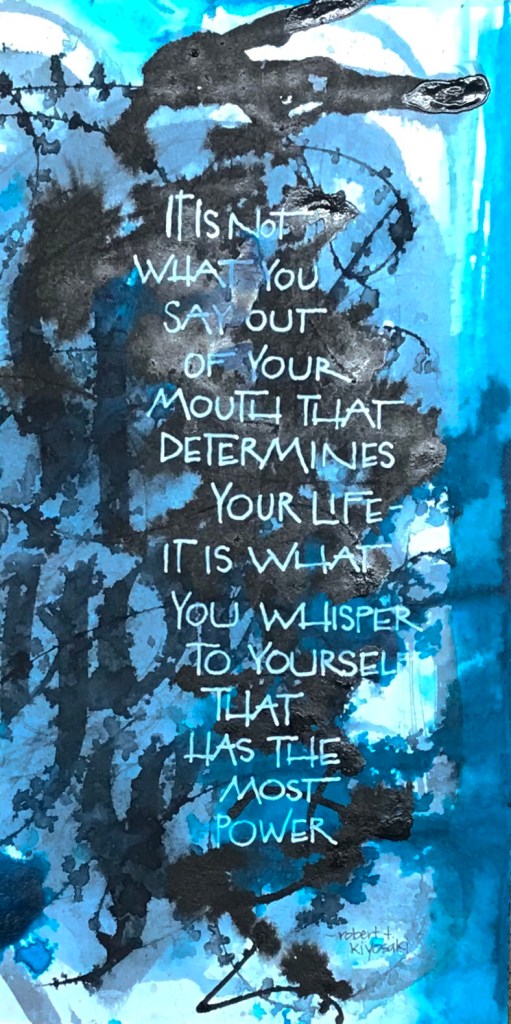 IT IS NOT
WHAT YOU
SAY OUT
OF YOUR
MOUTH THAT
DETERMINES
YOUR LIFE-
IT IS WHAT
YOU WHISPER
TO YOURSELF
THAT
HAS THE
MOST
POWER
robert t.
kiyosaki